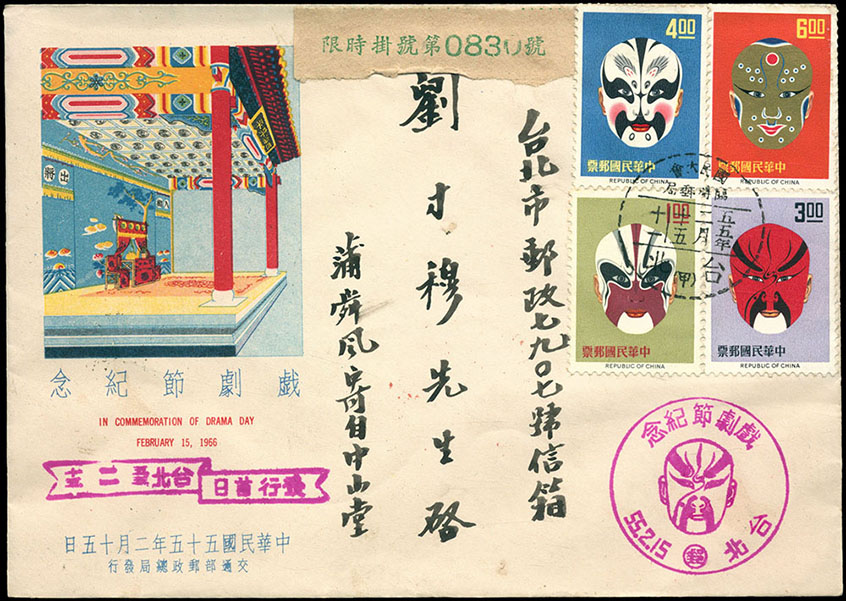 限時掛號第0830號
4.00
中華民國郵票
REPUBLIC OF CHINA
6.00
中華民國郵票
REPUBLIC OF CHINA
1.00
中華民國郵票
REPUBLIC OF CHINA
3.00
中華民國郵票
REPUBLIC OF CHINA
國民大會
臨時郵局
台北市郵政七九〇七號信箱
劉才穆先生啓
蒲舜風寄自中山堂
出將
戲劇節紀念
IN COMMEMORATION OF DRAMA DAY
FEBRUARY 15, 1966
發行首日
台北
中華民國五十五年二月十五日
交通部郵政總局發行
戲劇節紀念
台北
郵
55.2.15